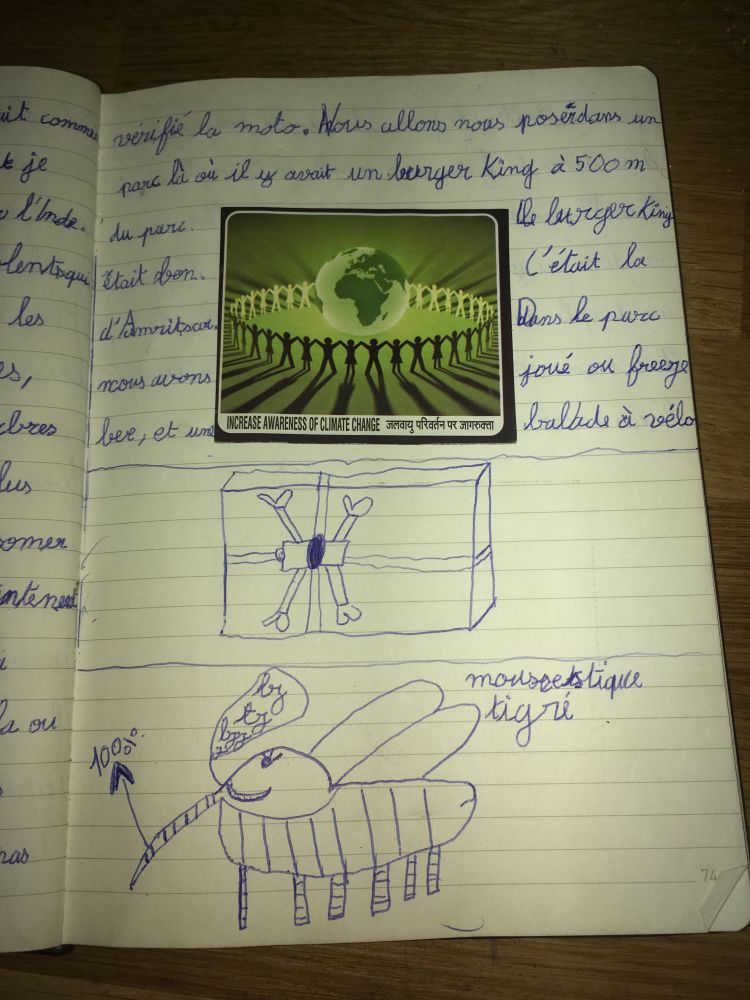 comme
je
l'Inde.
les
la ou
vérifié la moto. Nous allons nous poser dans un
parc là où il y avait un burger King à 500 m
du parc. Le burger King
était bon. C'était la
d'Amritsar. Dans le parc
nous avons joué ou freeze
bee, et une ballade à vélo
INCREASE AWARENESS OF CLIMATE CHANGE जलवायु परिवर्तन पर जागरुक्ता
moustique
tigré
bz
tz
bzz
zozz
100%
74